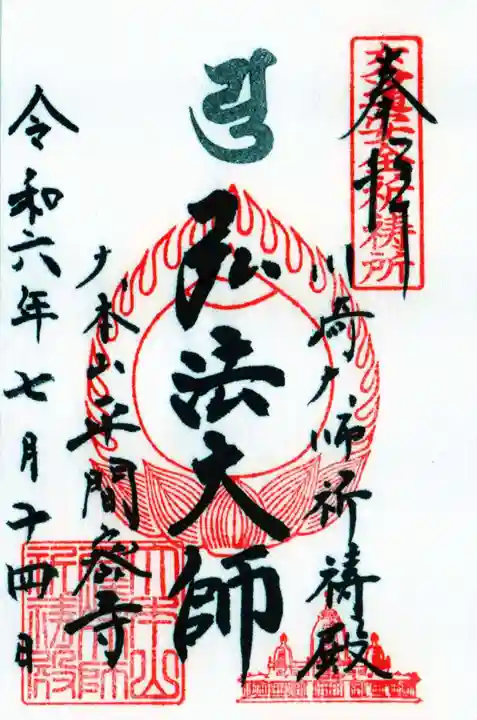 奉拝
交通安全祈祷所
川崎大師祈祷殿
弘法大師
大本山平間寺
令和六年七月十四日